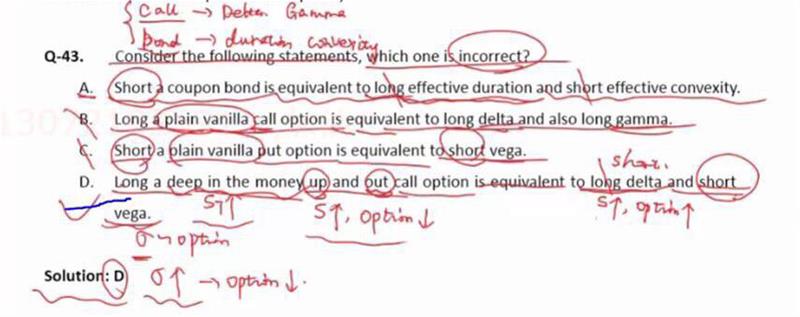 Call → Delta Gamma
bond → duration convexity
Q-43. Consider the following statements, which one is incorrect?
A. Short a coupon bond is equivalent to long effective duration and short effective convexity.
B. Long a plain vanilla call option is equivalent to long delta and also long gamma.
C. Short a plain vanilla put option is equivalent to short vega.
short.
D. Long a deep in the money up and out call option is equivalent to long delta and short
vega. S↑ S↑, option↓ S↑, option↑
σ→option
Solution: D σ↑ → option↓.